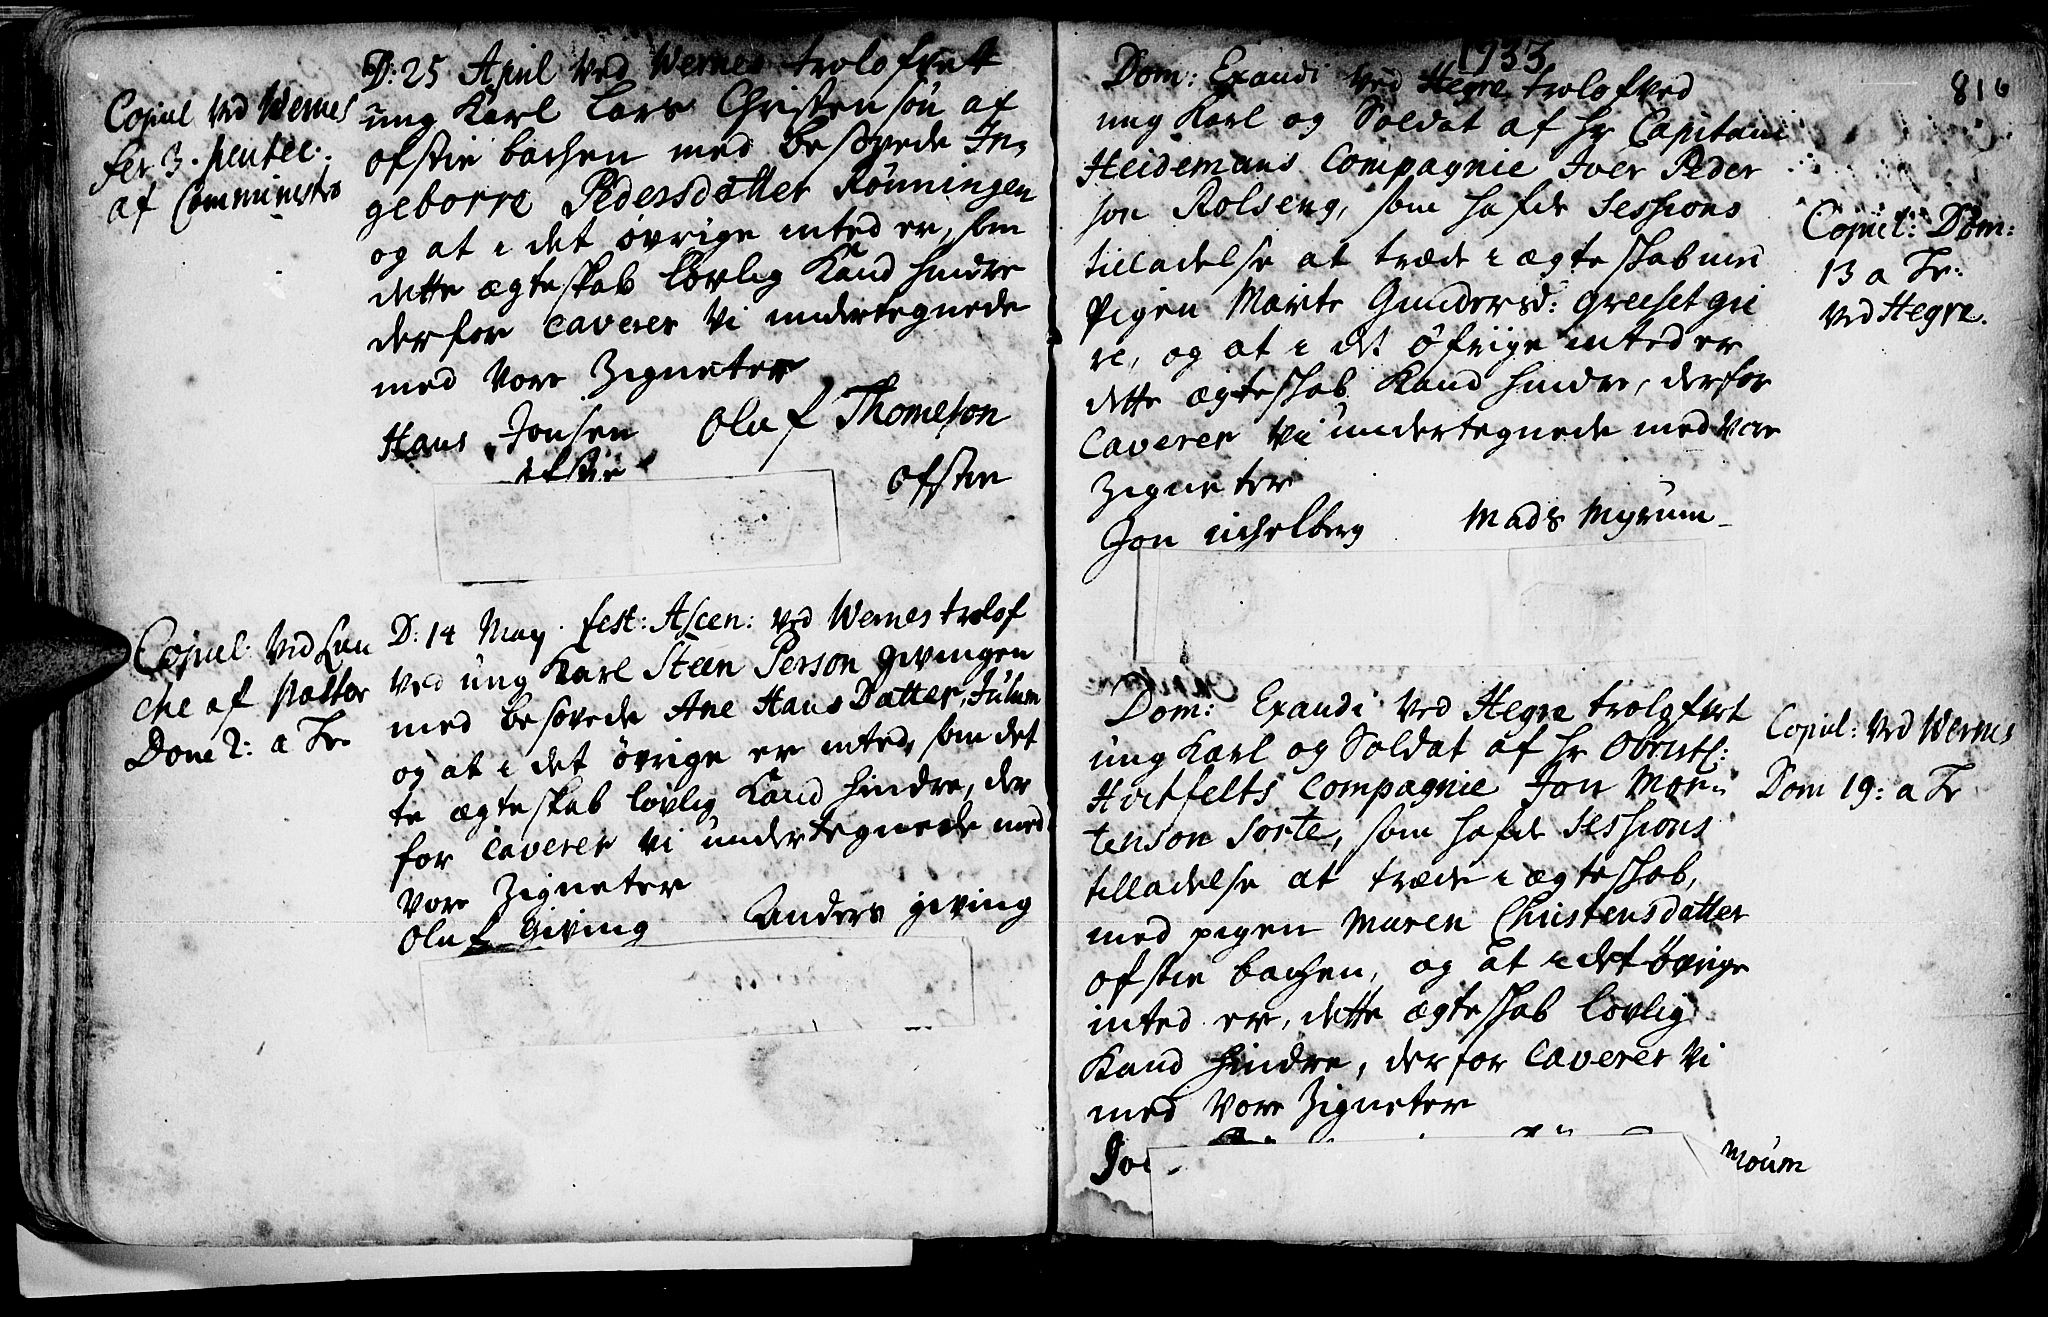 D: 25 April ved Wernes trolofvet
ung Karl Lars Christensøn af
ofstie bachen med besovede In-
geborre Pedersdatter Rønningen
og at i det øvrige inted er, som
dette ægteskab lovlig kand hindre
derfor caverer vi undertegnede
med vore Zigneter
Hans Jonsen Oluf Thomeson
ofstie
ofstie
Copul ved Wernes
fer 3. pentec:
af Comministro
D: 14 May fest: Ascen: ved Wernes trolof
ved ung Karl Steen Person givingen
med besovede Ane Hans Datter Julum
og at i det øvrige er inted, som det
te ægteskab lovlig kand hindre, der
for caverer vi undertegnede med
vore Zigneter
Oluf giving Anders giving
Copul. ved Lan
che af Pastor
Dom 2: a Tr.
1733
816
Dom: Exaudi ved Hegre trolofved
ung Karl og Soldat af hr Capitain
Heidemans Compagnie Iver Peder
son Rolseng, som hafde Sessions
tilladelse at træde i ægteskab med
Pigen Marite Gundersd: greeset gie
re, og at i det øfrige inted er
dette ægteskab kand hindre, derfor
caverer vi undertegnede med vore
Zigneter
Jon Michelberg Mads Myrum
Copul: Dom:
13 a Tr:
ved Hegre.
Dom: Exaudi ved Hegre trolofvet
ung Karl og Soldat af hr Obristl:
Hvitfelts Compagnie Jon Mor-
tenson Sorte, som hafde Sessions
tilladelse at træde i ægteskab,
med pigen Maren Christensdatter
ofstie bachen, og at i det øvrige
inted er, dette ægteskab lovlig
kand hindre, derfor caverer vi
med vore Zigneter
Jo moum
Copul: ved Wernes
Dom 19: a Tr